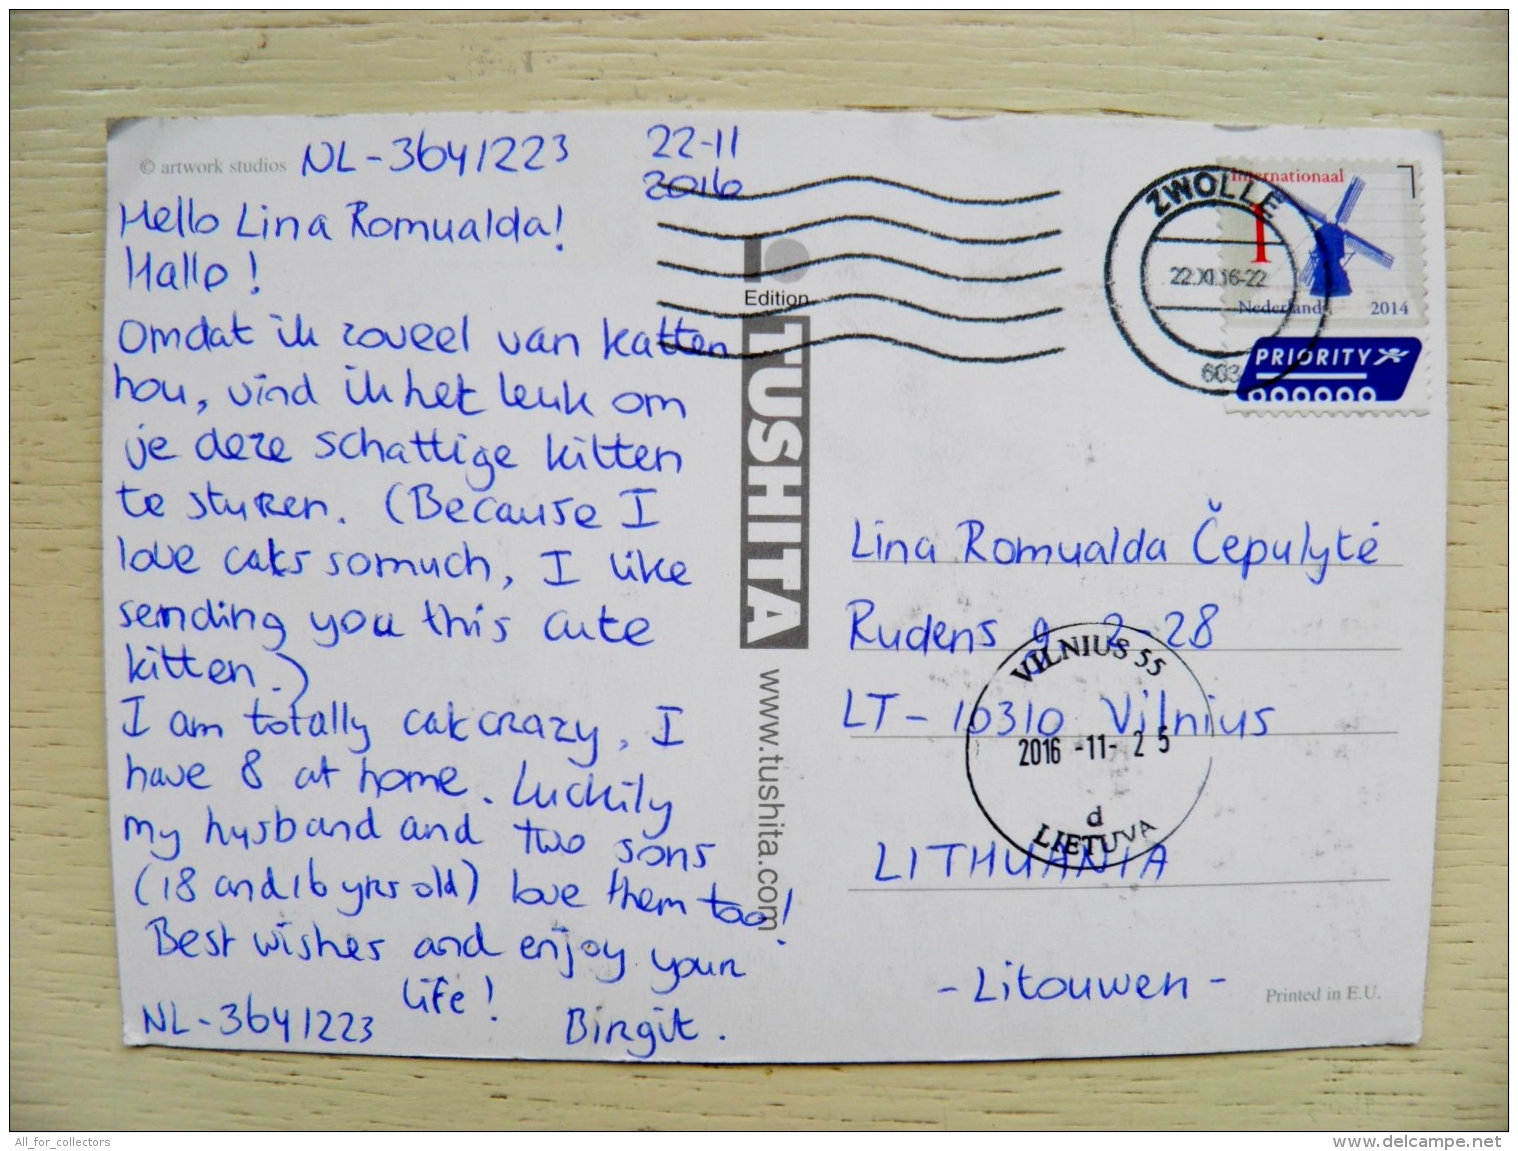 © artwork studios
NL-3641223
22-11
2016
Hello Lina Romualda!
Hallo!
Omdat ik zoveel van katten
hou, vind ik het leuk om
je deze schattige kitten
te sturen. (Because I
love cats somuch, I like
sending you this cute
kitten.)
I am totally catcrazy, I
have 8 at home. Luckily
my husband and two sons
(18 and 16 yrs old) love them too!
Best wishes and enjoy your
life!
NL-3641223
Birgit.
Edition
TUSHITA
www.tushita.com
ZWOLLE
22.XI.16-22
603
Internationaal
1
Nederland 2014
PRIORITY
Lina Romualda Čepulytė
Rudens g. 2-28
LT-10310 Vilnius
LITHUANIA
VILNIUS 55
2016-11-25
d
LIETUVA
- Litouwen -
Printed in E.U.
All_for_collectors
www.delcampe.net